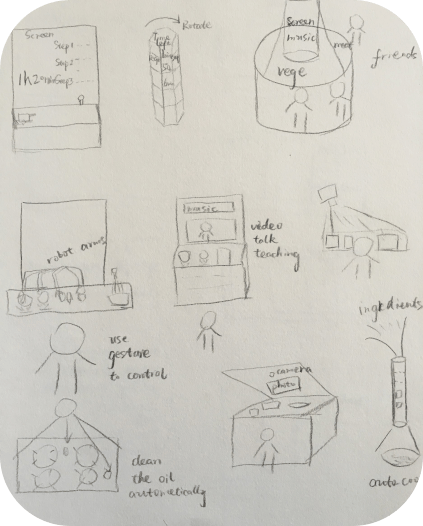 Screen
Step1
Step2
Step3
Rotate
Screen
music
meat
vege
friends
robot arms
music
video
talk
teaching
use
gesture
to control
camera
photo
ingredients
clean
the oil
automatically